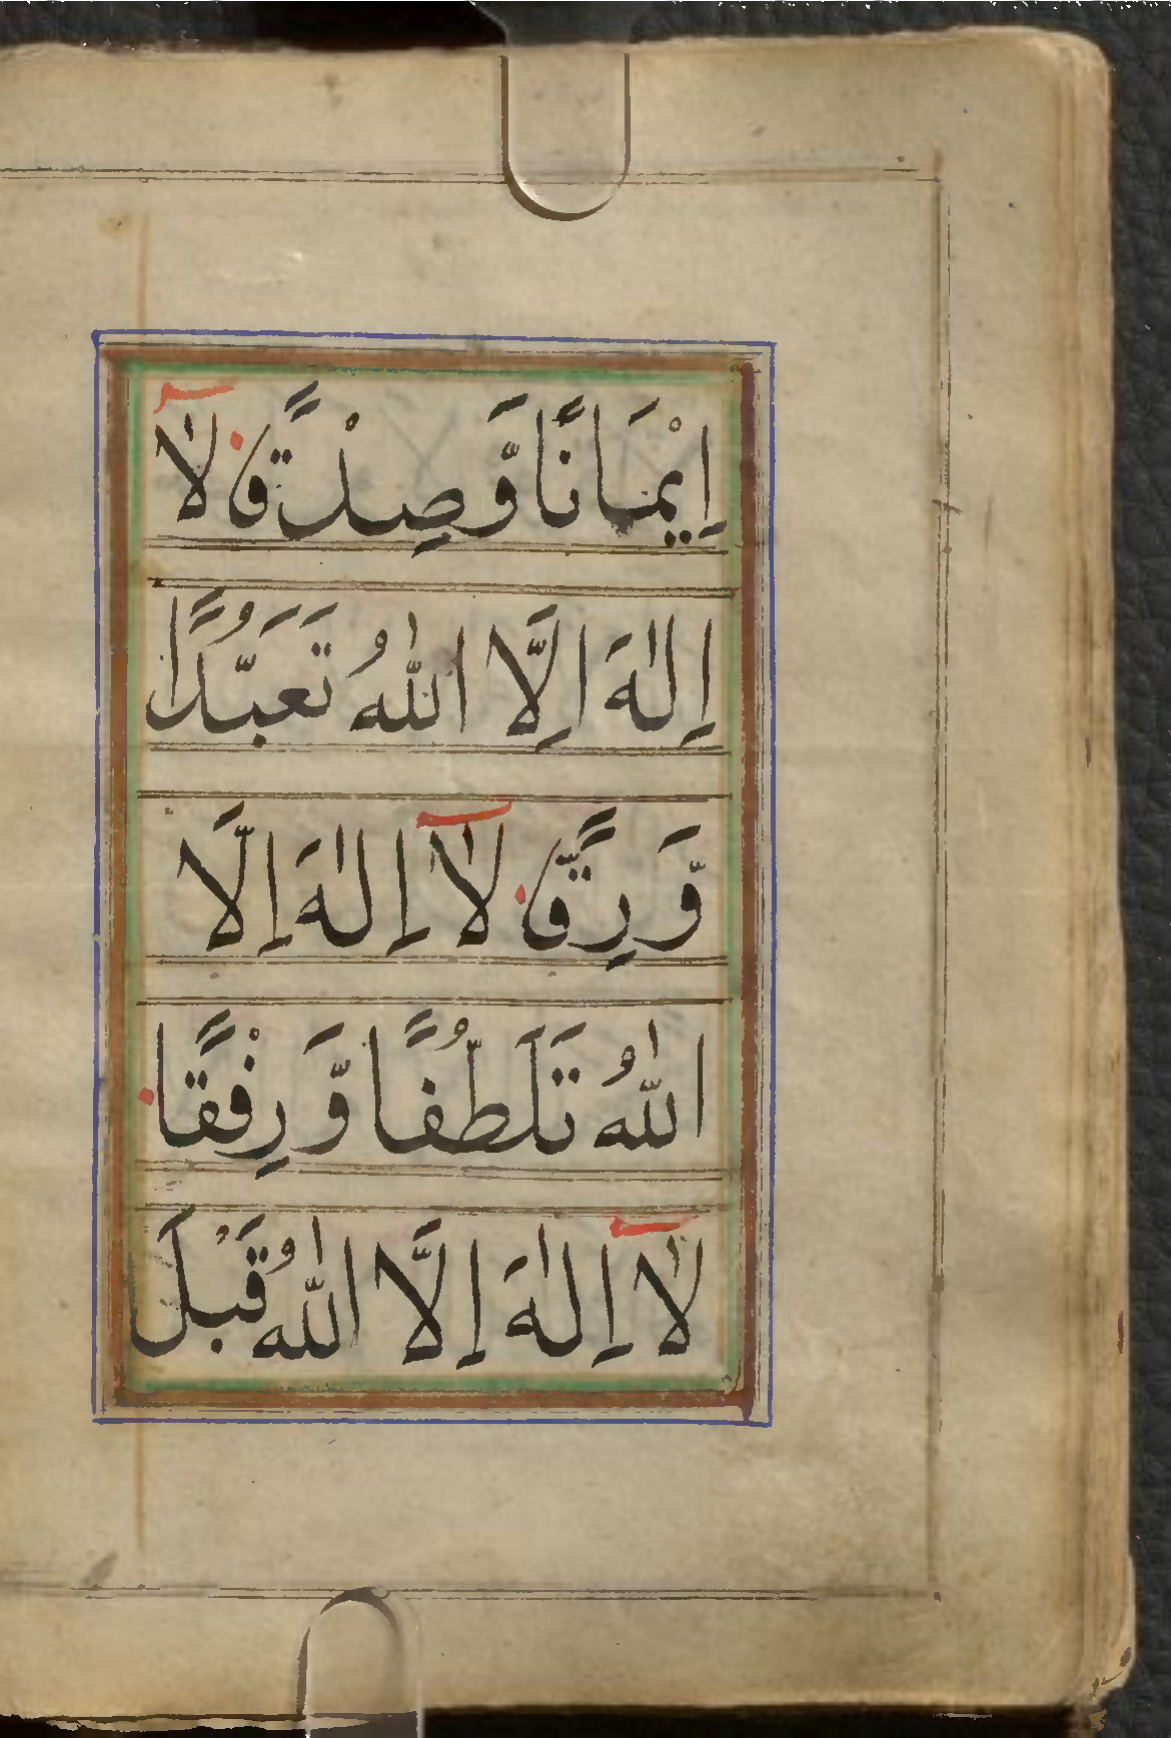 اِيْمَانًا وَّصِدْقًا لَا
اِلٰهَ اِلَّا اللّٰهُ تَعَبُّدًا
وَّرِقًّا لَا اِلٰهَ اِلَّا
اللّٰهُ تَلَطُّفًا وَّرِفْقًا
لَا اِلٰهَ اِلَّا اللّٰهُ قَبْلَ